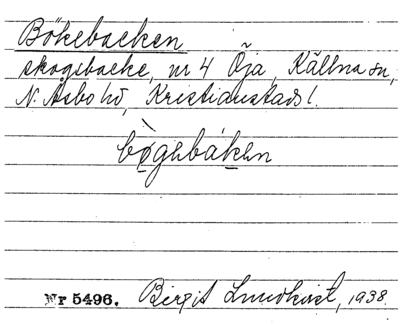 Bökebacken
skogsbacke, nr 4 Öja, Källna sn,
N. Åsbo hd, Kristianstads l.
bögebáken
Nr 5496. Birgit Lundkvist, 1938.